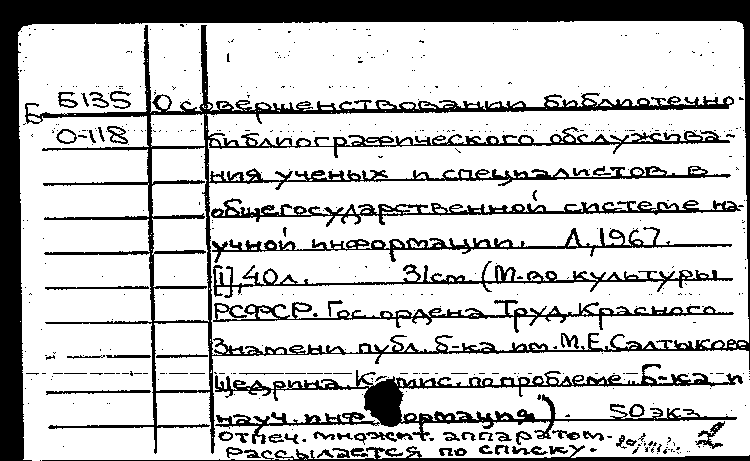 Б Б135 О совершенствовании библиотечно-
О-118 библиографического обслужива-
ния ученых и специалистов в
общегосударственной системе на-
учной информации. Л., 1967.
[1], 40 л. 31 см (М-во культуры
РСФСР. Гос. ордена Труд. Красного
Знамени публ. б-ка им. М.Е. Салтыкова
Щедрина. Комис. по проблеме „Б-ка и
науч. информация"). 50 экз.
Отпеч. множит. аппаратом.
Рассылается по списку. 2